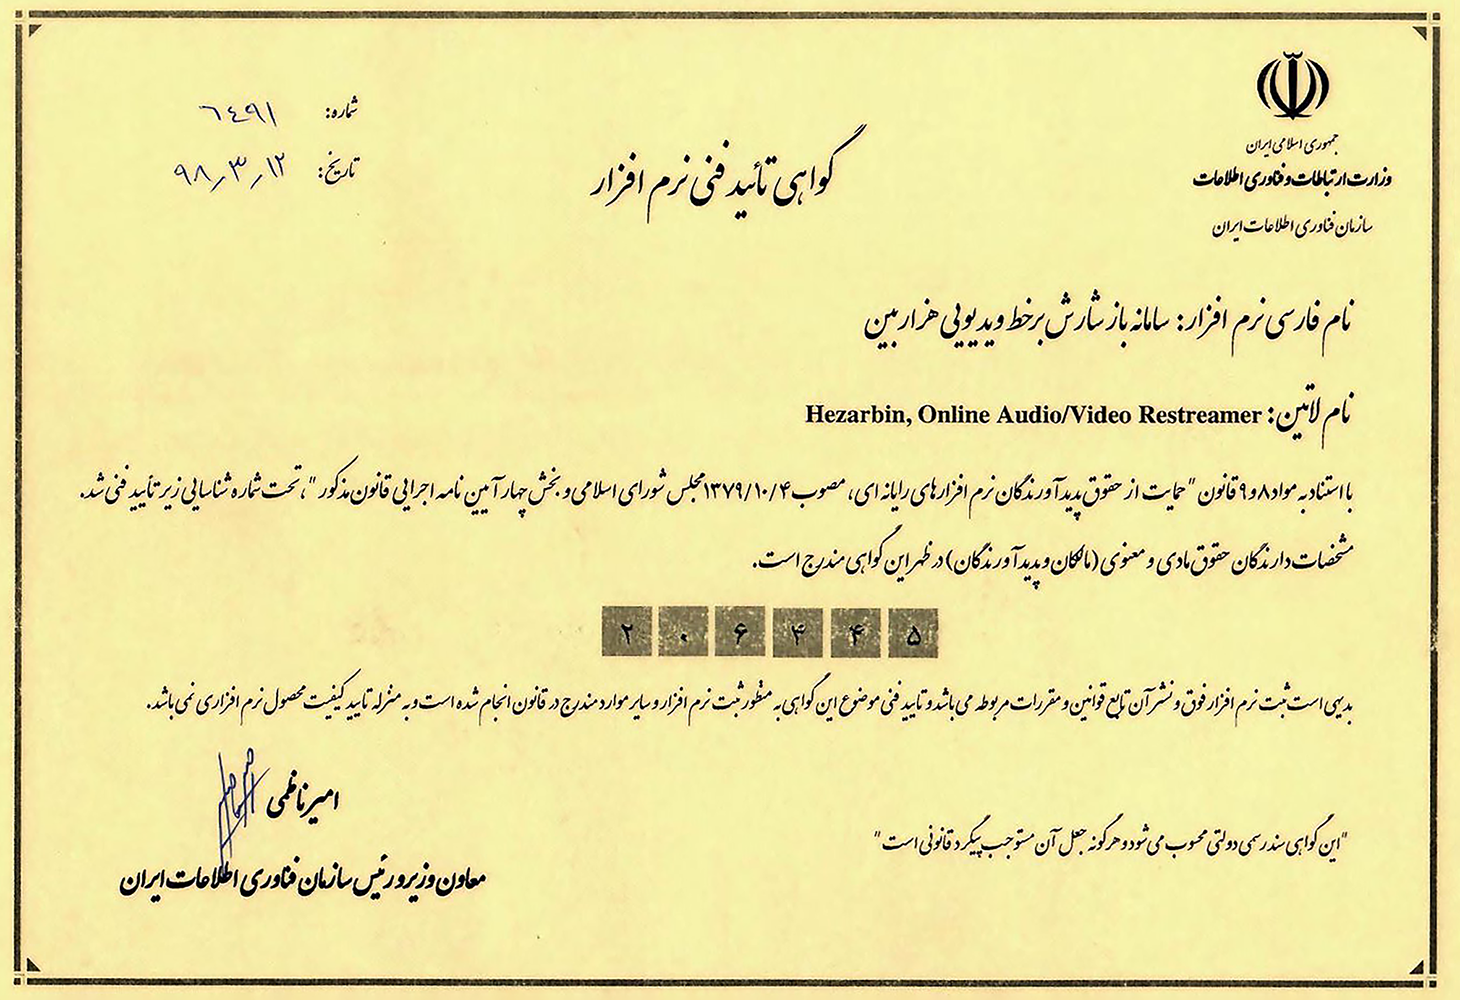 جمهوری اسلامی ایران
وزارت ارتباطات و فناوری اطلاعات
سازمان فناوری اطلاعات ایران
شماره: ٦٤٩١
تاریخ: ٩٨٫٣٫١٢
گواهی تأئید فنی نرم افزار
نام فارسی نرم افزار: سامانه باز شارش برخط ویدیویی هزاربین
نام لاتین: Hezarbin, Online Audio/Video Restreamer
با استناد به مواد ۸ و ۹ قانون "حمایت از حقوق پدیدآورندگان نرم افزارهای رایانه ای، مصوب ۱۳۷۹/۱۰/۴ مجلس شورای اسلامی و بخش چهار آیین نامه اجرایی قانون مذکور"، تحت شماره شناسایی زیر تأیید فنی شد.
مشخصات دارندگان حقوق مادی و معنوی (مالکان و پدیدآورندگان) در ظهر این گواهی مندرج است.
۲ ۰ ۶ ۴ ۴ ۵
بدیهی است ثبت نرم افزار فوق و نشر آن تابع قوانین و مقررات مربوطه می باشد و تایید فنی موضوع این گواهی به منظور ثبت نرم افزار و سایر موارد مندرج در قانون انجام شده است و به منزله تایید کیفیت محصول نرم افزاری نمی باشد.
امیر ناظمی
معاون وزیر و رئیس سازمان فناوری اطلاعات ایران
"این گواهی سند رسمی دولتی محسوب می شود و هرگونه جعل آن مستوجب پیگرد قانونی است"